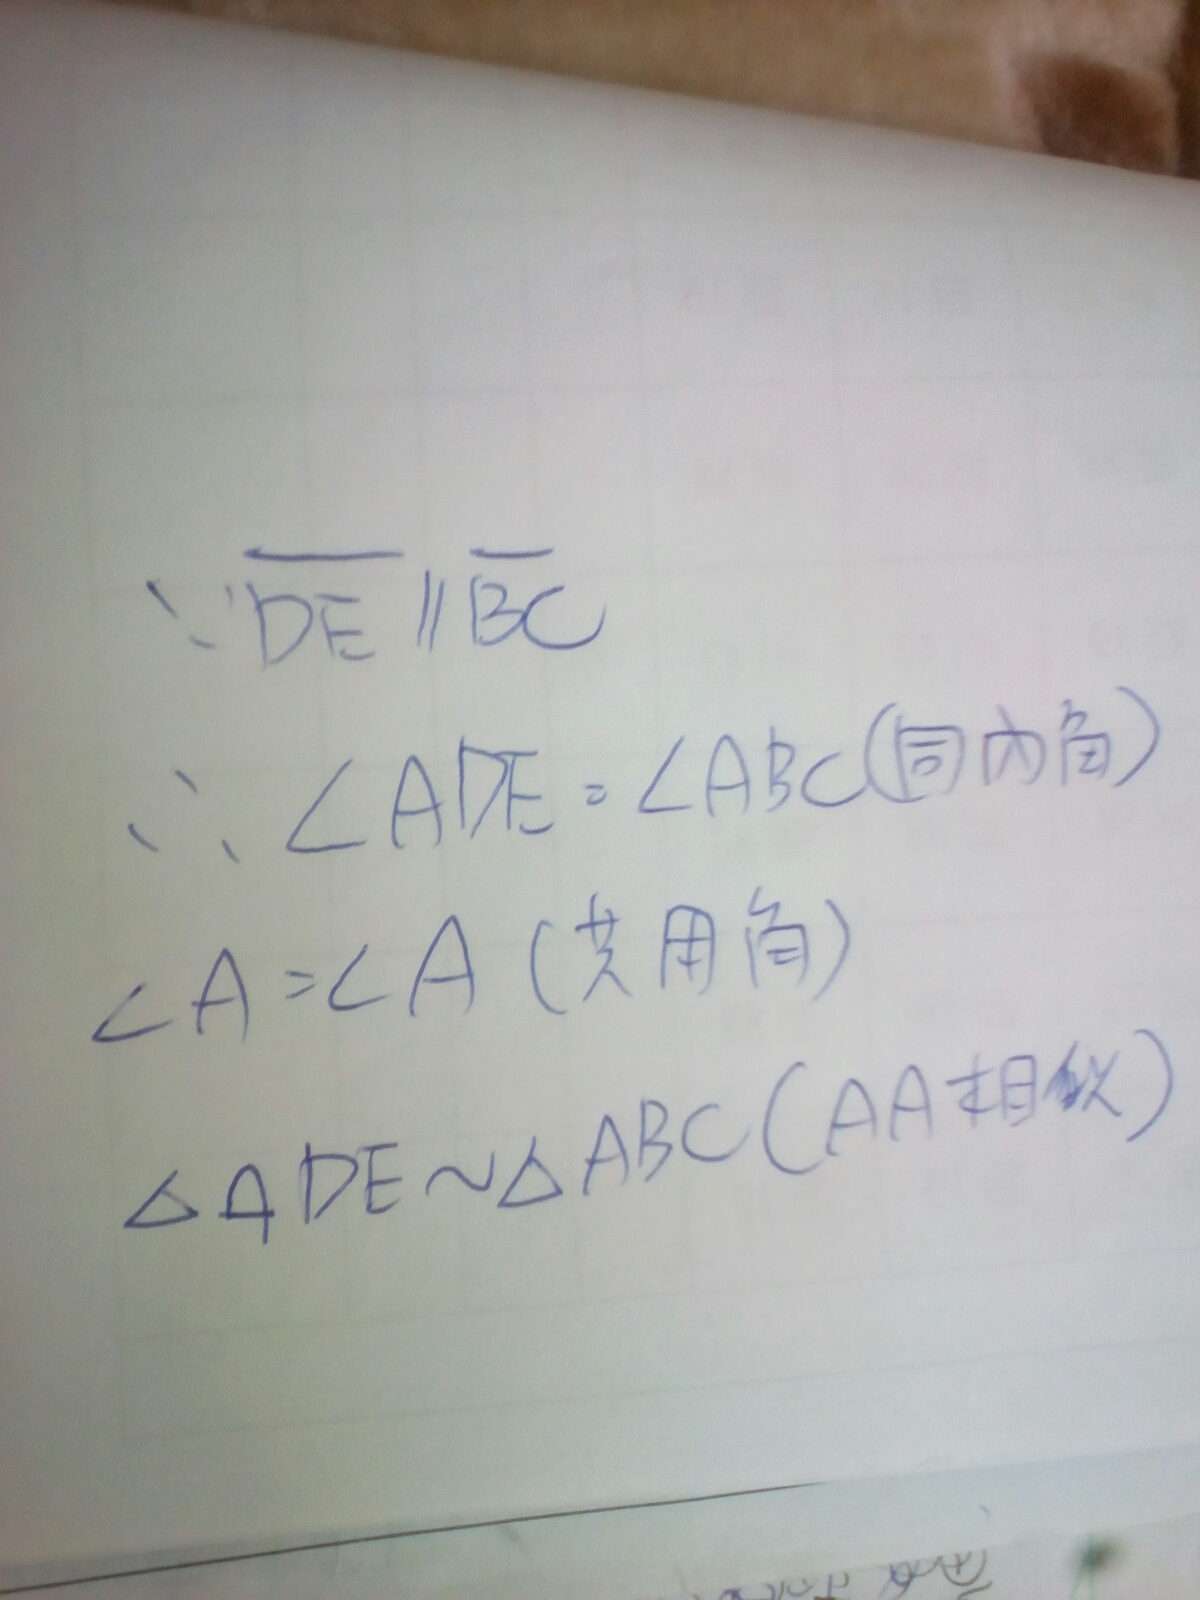 ∵ D̅E̅ // B̅C̅
∴ ∠ADE = ∠ABC (同內角)
∠A = ∠A (共用角)
△ADE ~ △ABC (AA相似)